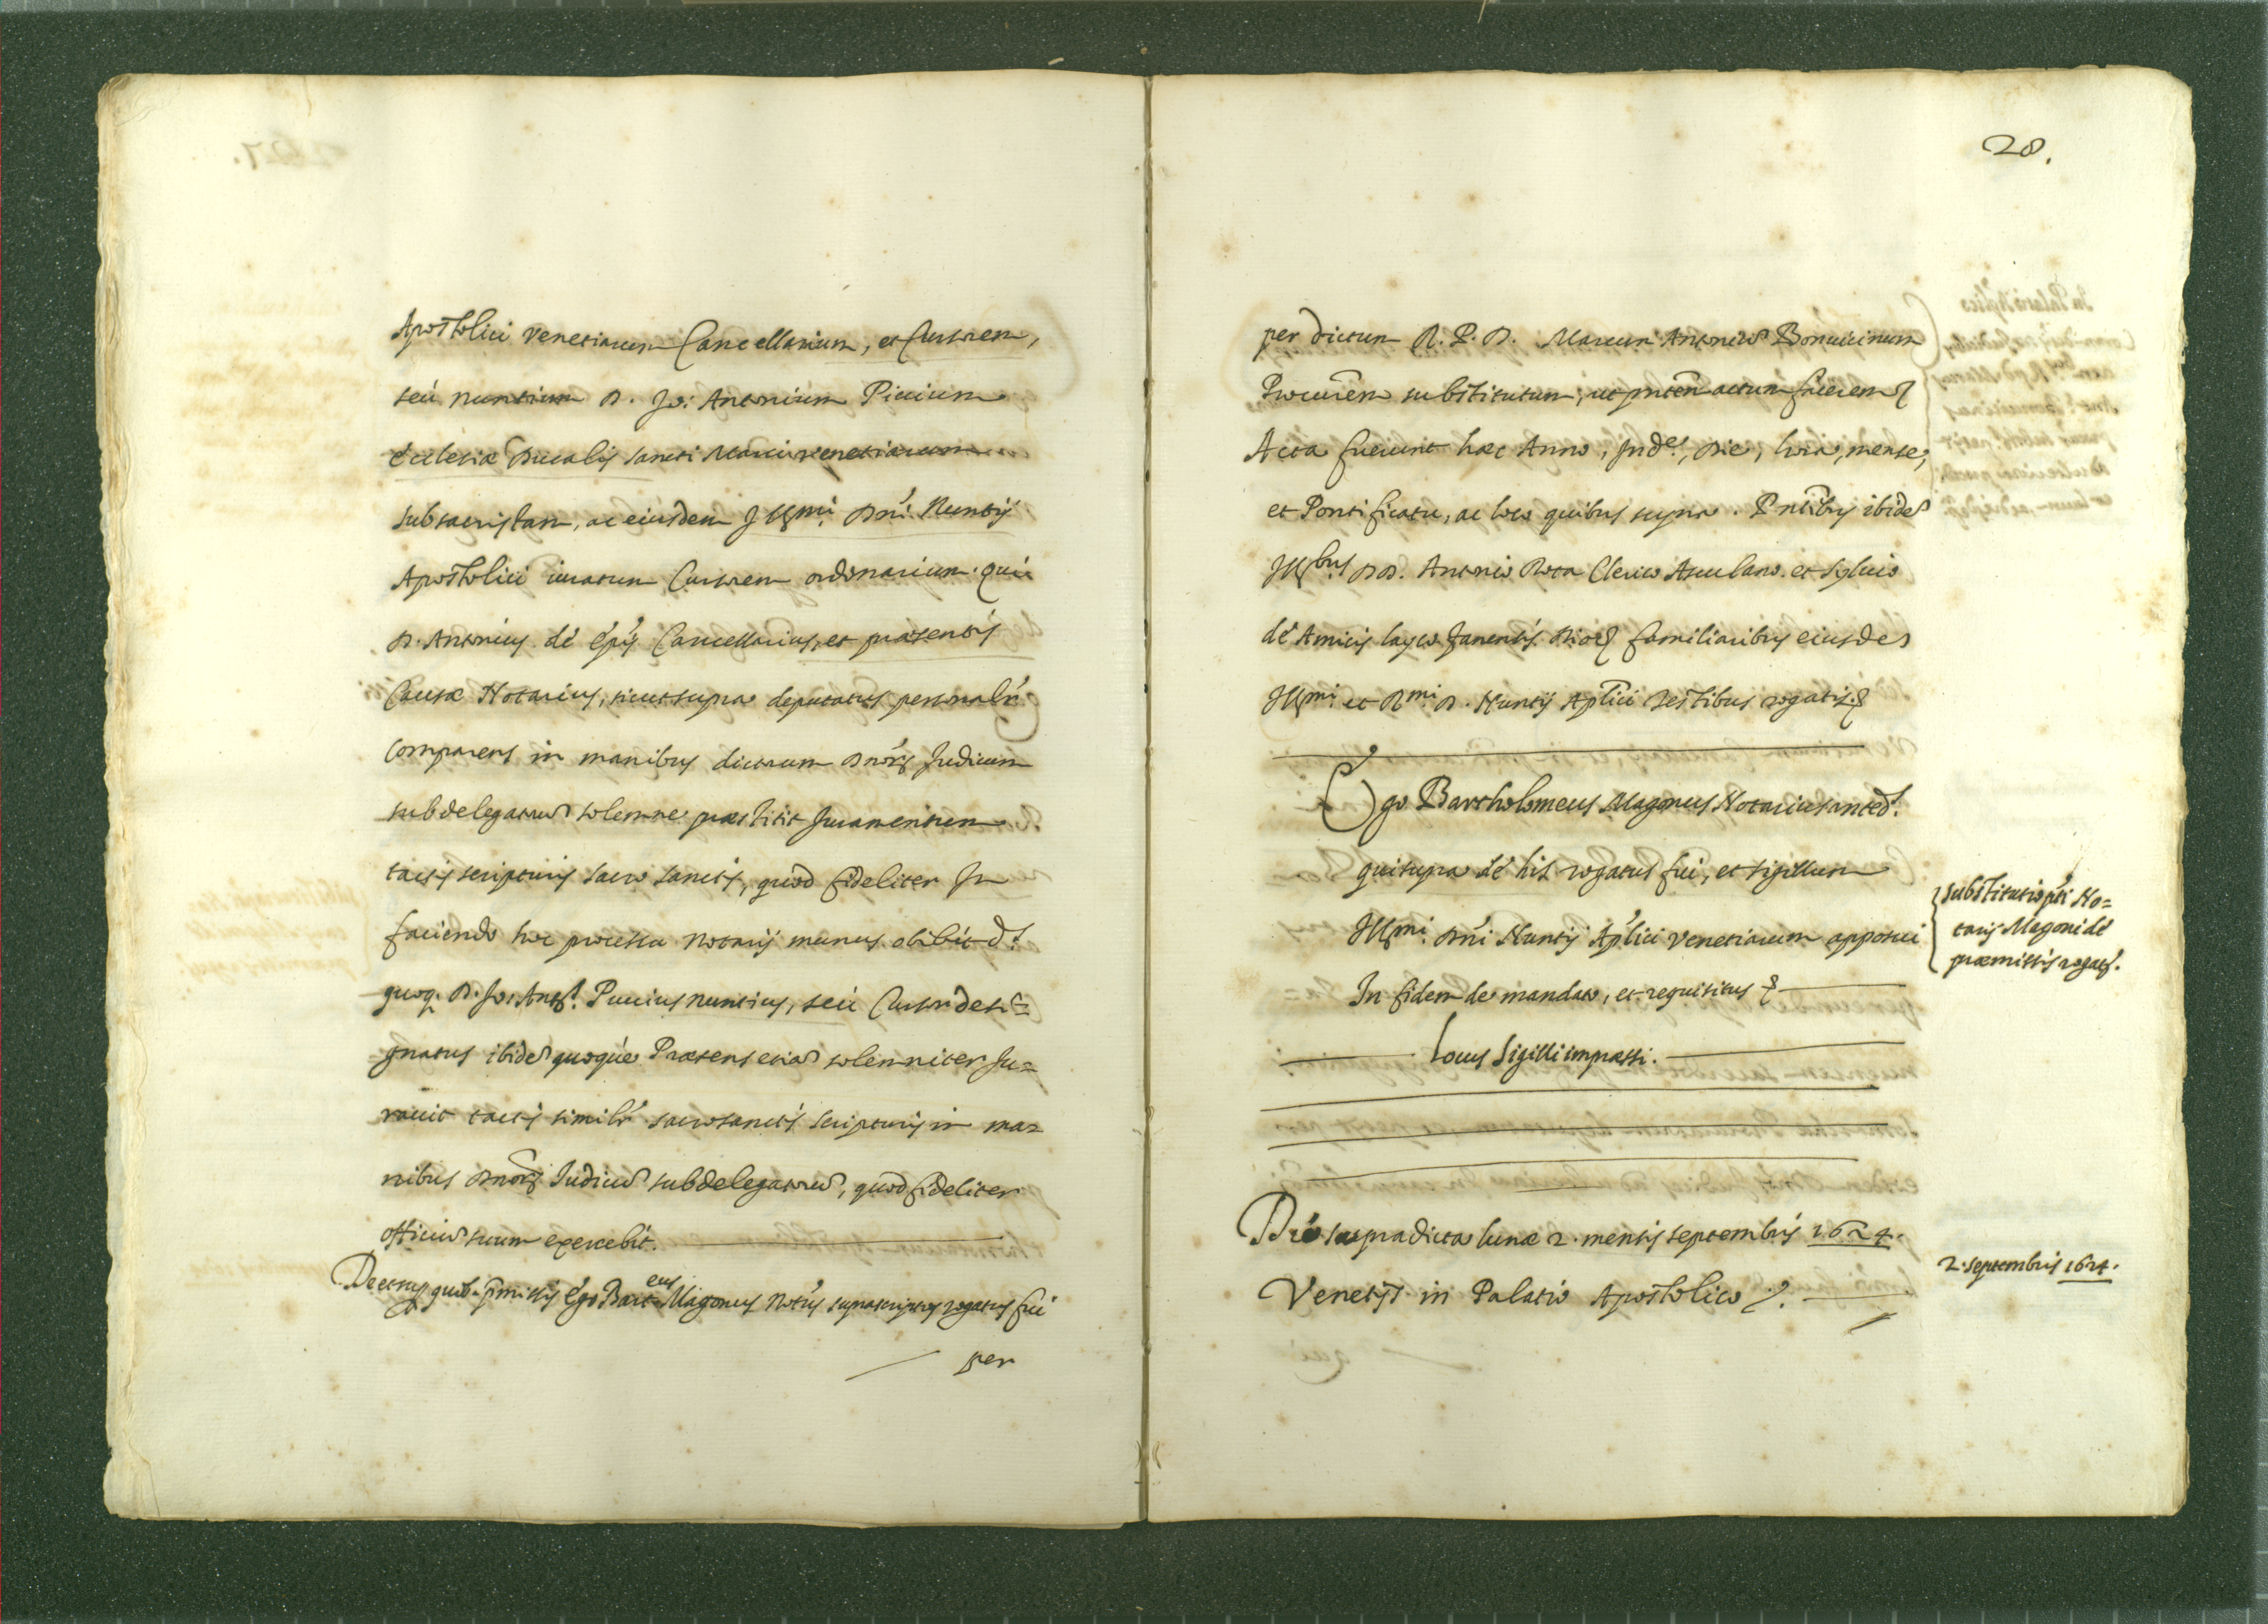 Apostolici Venetiarum Cancellarium, et Cursorem,
seù nuntium D. Jo: Antonium Piccium
Ecclesiæ Ducalis sancti Marci Venetiarum
subsacristam, ac eiusdem Illmi. Dni. Nuntij
Apostolici iuratum Cursorem ordinarium. qui
D. Antonius dé Cancellarius, et præsentis
Causæ Notarius, sicut supra deputatus personalr
comparens in manibus dictorum Dnor Judicum
subdelegatorum solemne præstitit Juramentum
tactis scripturis sacro sanctis, quod fideliter In
faciendo hoc processu Notarij munus obibit d.
quoq. D. Jo: Ant. Puccius nuntius, seù Cursor desi=
gnatus ibidem quoque Præsens etiam solemniter Ju=
rauit tactis similr sacrosanctis scripturis in ma=
nibus Dnor Iudicum subdelegatorum, quod fideliter
officium suum exercebit.
De quib. pmissis Ego Barteus Magonus Notus suprascriptus rogatus fui
per
28.
per dictum R. P. D. Marcum Antonium Bonuicinum
Procurem substitutum, ut pntem actum facerem
Acta fuerunt hæc Anno, Inde, die, hora, mense,
et Pontificatu, ac loco quibus supra. Pntibus ibidem
Illbus DD. Antonio Rota Clerico Asculano. et Syluio
dé Amicis layco Fanensis familiaribus eiusdem
Illmi. et Rmi. D. Nuntij Aplici testibus rogatis
Ego Bartholomeus Magonus Notarius anted.
qui supra dé his rogatus fui, et sigillum
Illmi. Dni Nuntij Aplici Venetiarum apposui
In fidem de mandato, et requisitus
Locus Sigilli impressi.
substitutio pti No=
tarij Magoni dé
præmissis rogati.
Die supradicta lunæ 2. mensis septembris 1624.
Venetijs in Palatio Apostolico
2. septembris 1624.